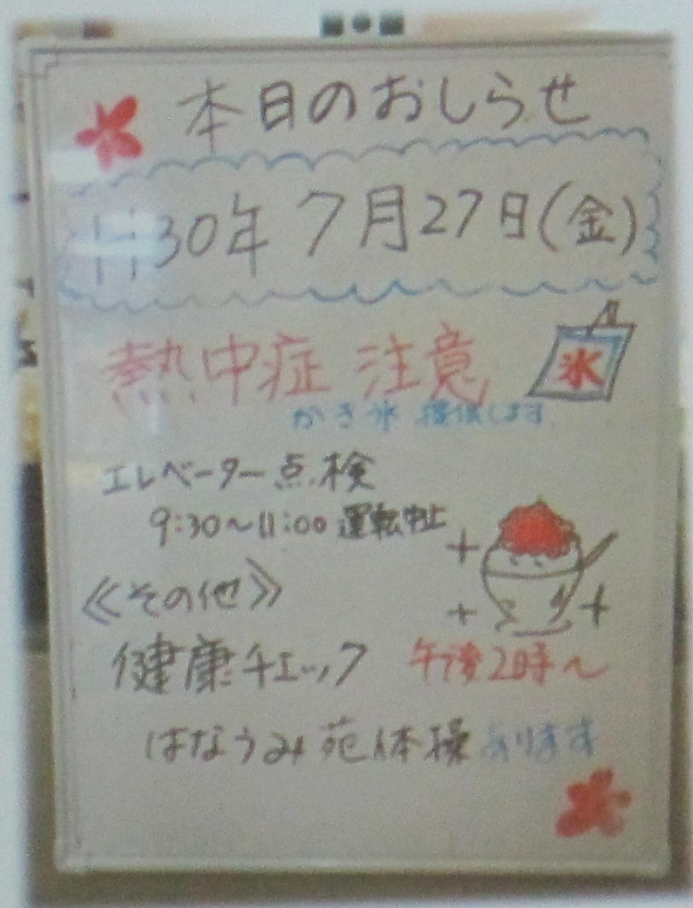 本日のおしらせ
30年 7月27日(金)
熱中症 注意
氷
かき氷 提供します
エレベーター点検
9:30～11:00 運転中止
≪その他≫
健康チェック 午後2時～
はなうみ苑体操あります